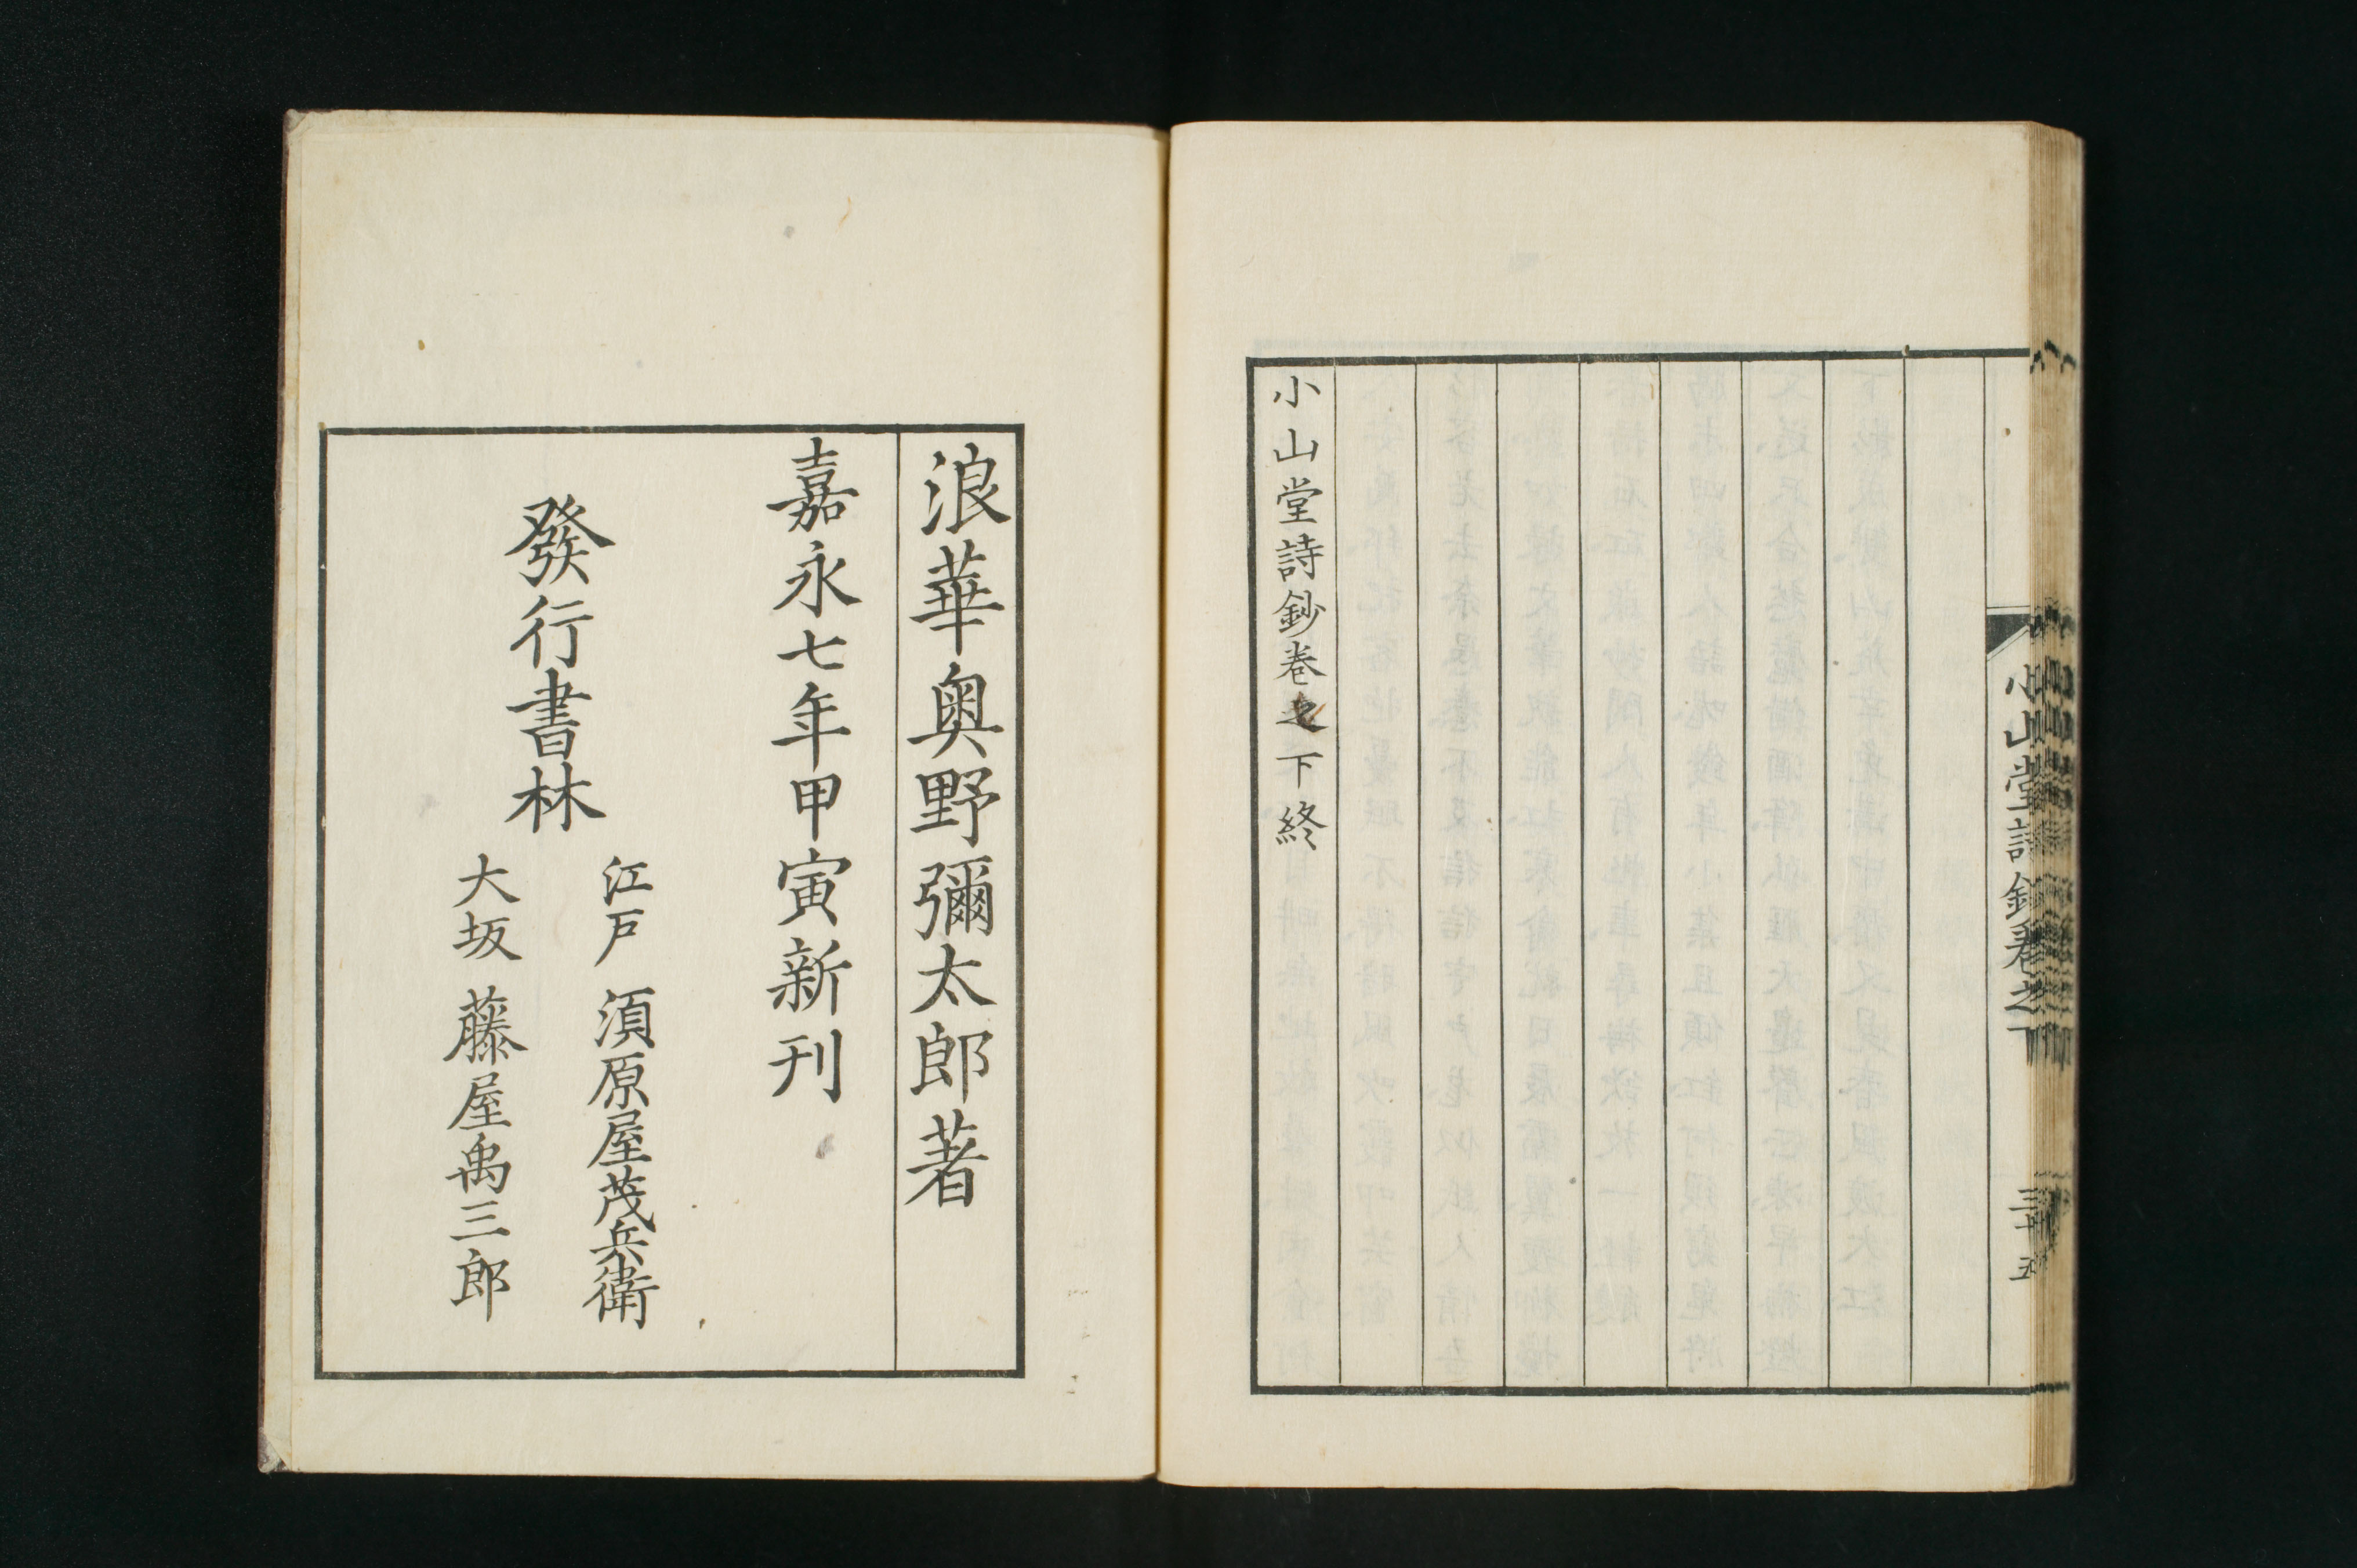 小山堂詩鈔卷之下
三十五
小山堂詩鈔卷之下終
浪華奥野彌太郎著
嘉永七年甲寅新刊
發行書林
江戸 須原屋茂兵衛
大坂 藤屋禹三郎